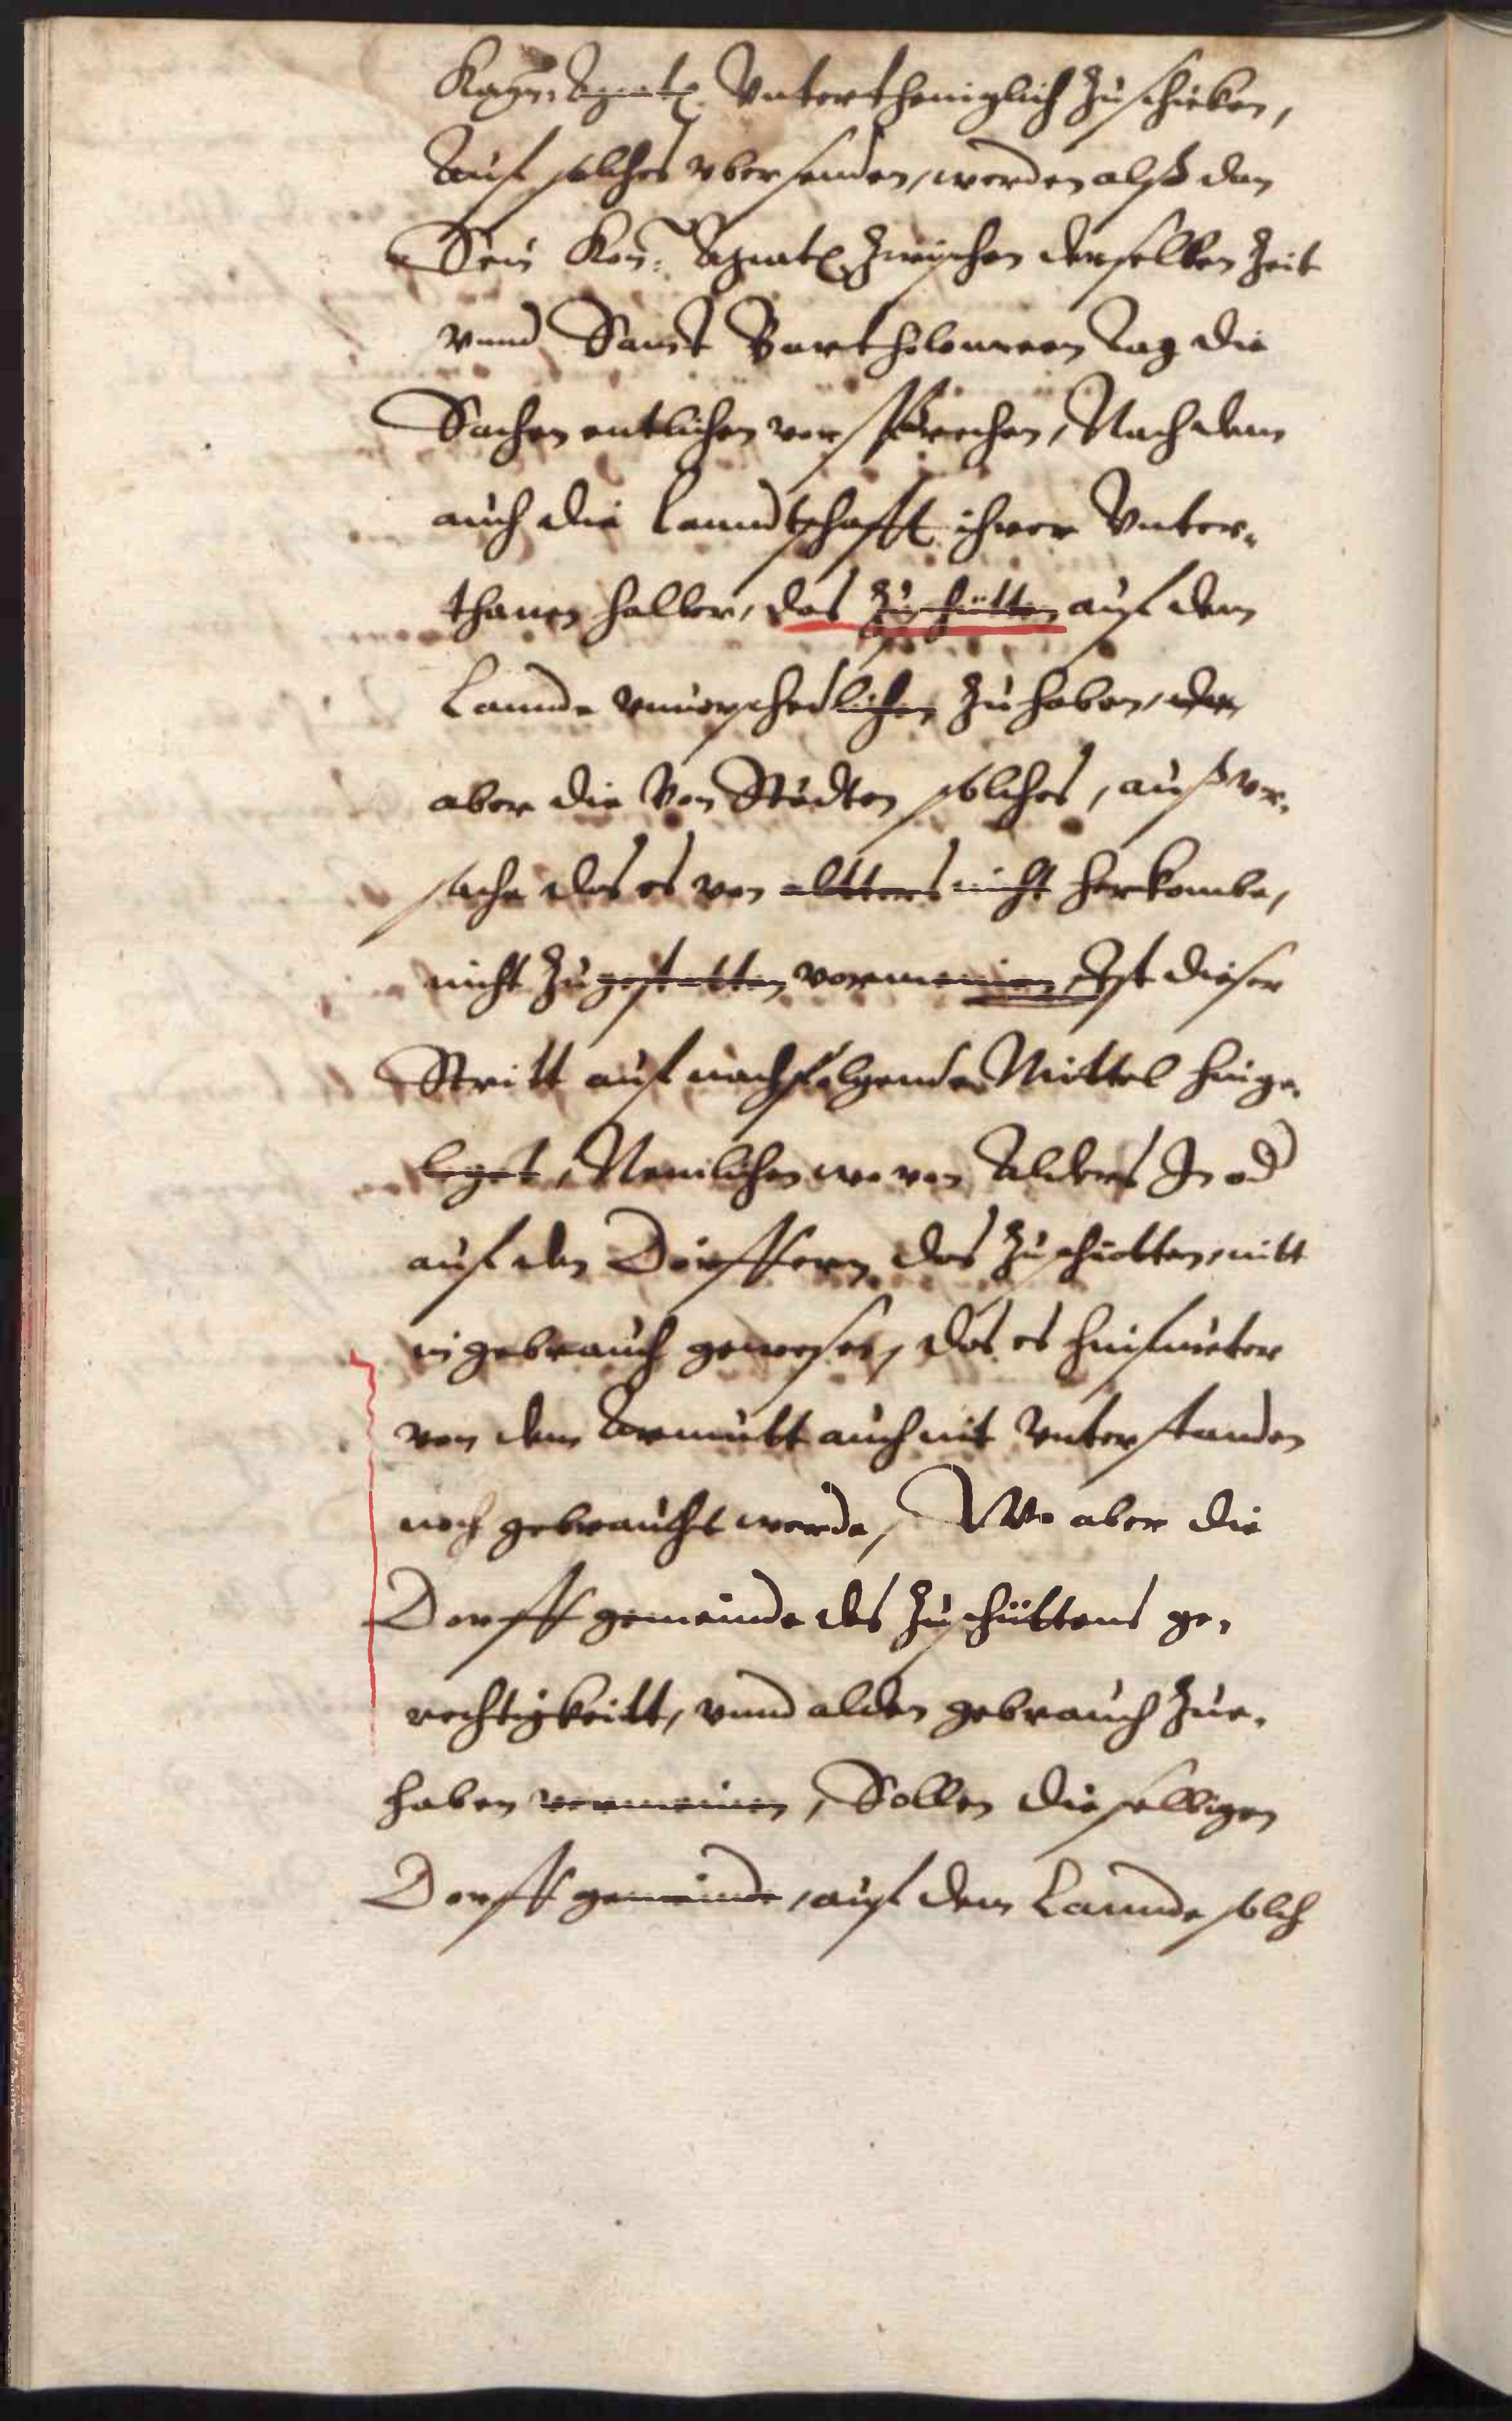 Kay: Maytt. Vntertheniglich zuschicken,
Auf solches vbersenden, werden alß dan
Sein Kay: Maytt. zwischen derselben Zeit
vnnd Sanct Bartholomeen Tag die
Sachen entlichen versprechen, Nach dem
auch die Lanndtschafft ihrer Vnter-
thanen halber, das zuschütten auf dem
Lannde zuhaben,
aber die Von Städten solches, auß vr-
sache das es von altters nicht herkombe,
nicht zugestatten vormeinen, Ist dieser
Stritt auf nachfolgende Mittel hinge-
leget, Nemlichen wo von Alders In od
auf den Dörffern das zuschütten, nitt
in gebrauch gewesen, das es hinfüeter
von dem Armutt auch nit Vnterstanden
noch gebraucht werde, Wo aber die
Dorff gemeinde des zuschüttens ge-
rechtigkeitt, vnnd alden gebrauch zue-
haben vermeinen, Sollen dieselbigen
Dorff gemeinde, auf dem Lannde solch